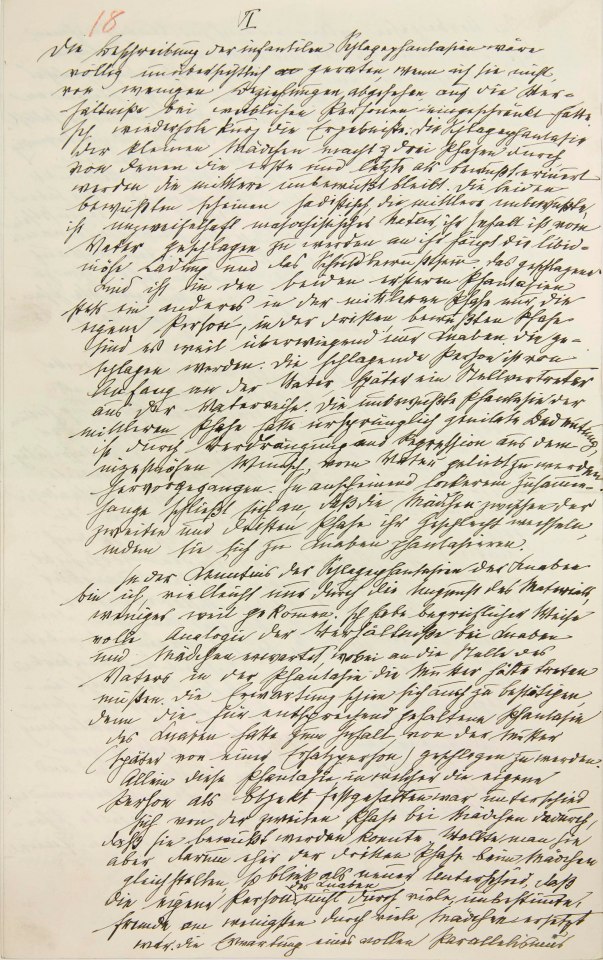 18
VI
Die Beschreibung der infantilen Schlagephantasien wäre
völlig unübersichtlich geraten, wenn ich sie nicht,
von wenigen Beziehungen abgesehen auf die Ver-
hältniße bei weiblichen Personen eingeschränkt hätte
Ich wiederhole kurz die Ergebniße: die Schlagephantasie
der kleinen Mädchen macht drei Phasen durch
von denen die erste und letzte als bewußt erinnert
werden die mittlere unbewußt bleibt. Die beiden
bewußten scheinen sadistisch die mittlere unbewußte
ist unzweifelhaft masochistischer Natur, ihr Inhalt ist vom
Vater geschlagen zu werden an ihr hängt die libi-
nöse Ladung und das Schuldbewußtsein. Das geschlagene
Kind ist in den beiden ersteren Phantasien
stets ein anderes in der mittleren Phase nur die
eigene Person, in der dritten bewußten Phase
sind es weit überwiegend nur Knaben die ge-
schlagen werden. Die schlagende Person ist von
Anfang an der Vater später ein Stellvertreter
aus der Vaterreihe. Die unbewußte Phantasie der
mittleren Phase hatte ursprünglich genitale Bedeutung,
ist durch Verdrängung und Regression aus dem
inzestuösen Wunsch, vom Vater geliebt zu werden
hervorgegangen. In anscheinend lockerem Zusamen-
hange schließt sich an, daß die Mädchen zwischen der
zweiten und dritten Phase ihr Geschlecht wechseln,
indem sie sich zu Knaben phantasieren.
In der Kenntnis der Schlagephantasien der Knaben
bin ich, vielleicht nur durch die Ungunst des Materials,
weniger weit gekomen. Ich habe begreiflicher Weise
volle Analogie der Verhältniße bei Knaben
und Mädchen erwartet, wobei an die Stelle des
Vaters in der Phantasie die Mutter hätte treten
müßen. Die Erwartung schien sich auch zu bestätigen,
denn die für entsprechend gehaltene Phantasie
des Knaben hatte zum Inhalt von der Mutter
(später von einer Ersatzperson) geschlagen zu werden.
Allein diese Phantasie, in welcher die eigene
Person als Objekt festgehalten war, unterschied
sich von der zweiten Phase bei Mädchen dadurch,
daß sie bewußt werden konnte Wollte man sie
aber darum eher der dritten Phase beim Mädchen
gleichstellen, so blieb als neuer Unterschied, daß
die eigene Person des Knaben nicht durch viele, unbestimte,
fremde, am wenigsten durch viele Mädchen ersetzt
war. Die Erwartung eines vollen Parallelismus